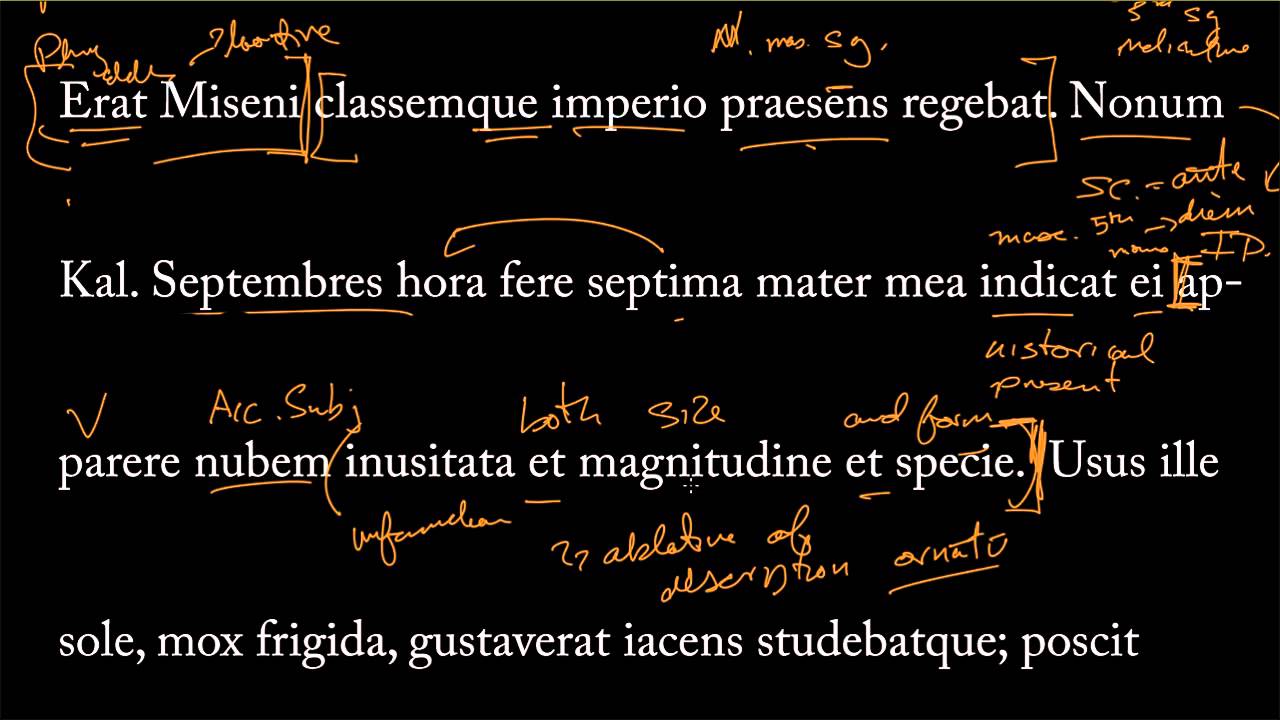 5th sg
Pliny locative N. mas. sg. indicative
Erat Miseni classemque imperio praesēns regebat. Nonum
sc. = ante
masc. 5th → diem
ID.
Kal. Septembres hora fere septima mater mea indicat ei ap-
historical
present
V Acc. Subj both size and form
parere nubem inusitata et magnitudine et specie. Usus ille
unfamiliar
→ ablative of
description ornatū
sole, mox frigida, gustaverat iacens studebatque; poscit